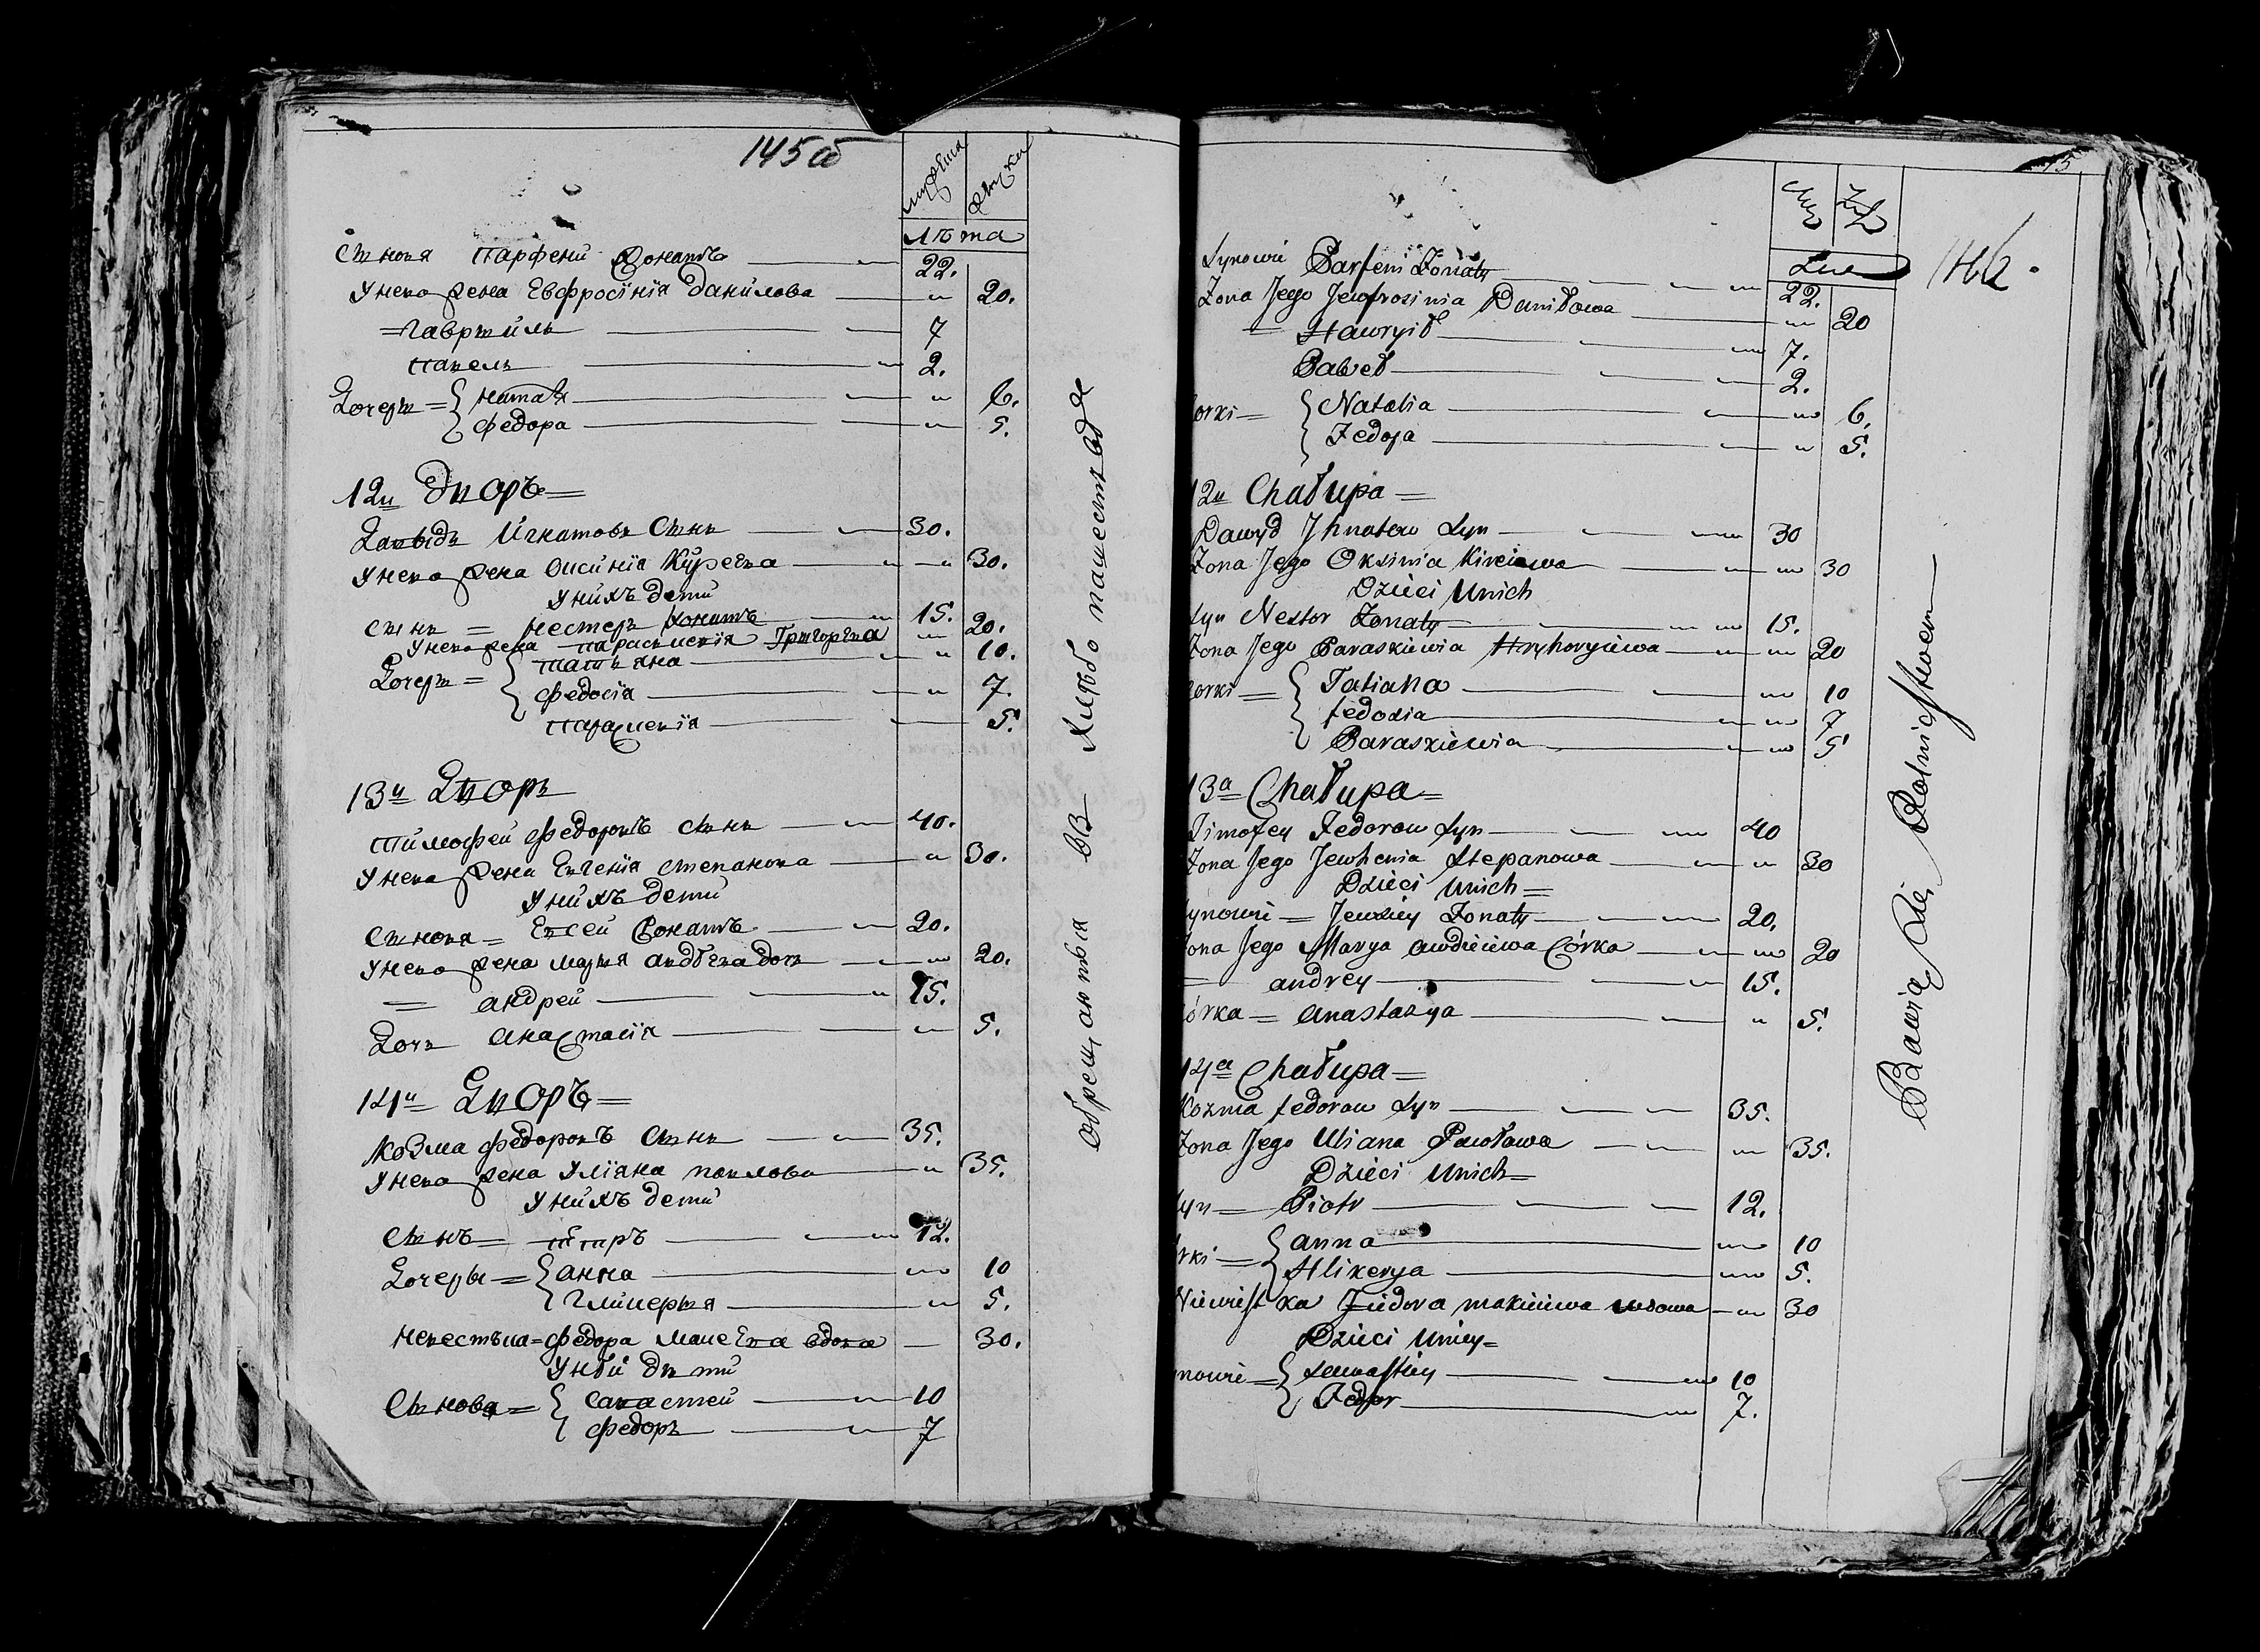 145об
мужеска
женска
Лѣта
Сынова Парфени Жонатъ 22.
Унего жена Евфросинїа Данилова — 20.
= Гаврыилъ 7
Павелъ 2.
Дочеры = Наталя — 6.
Федора — 5.
12й Дворъ =
Давыдъ Игнатовъ Сынъ 30.
Унего жена Оксинїа Кирѣева — 30.
Унихъ дети
Сынъ = Нестеръ Жонатъ 15.
Унего жена Параскевїя Григорева — 20.
Дочеры = Татьяна — 10.
Федосїа — 7.
Параскевїя — 5.
13й Дворъ
Тимофей Федоровъ Сынъ 40.
Унего жена Евгенїа Степанова — 30.
Унихъ дети
Сынова = Евсей Жонатъ 20.
Унего жена Марыя Авдѣева дочъ — 20.
= Андрей 15.
Дочъ Анастасїя — 5.
14й Дворъ =
Козма Федоровъ Сынъ 35.
Унего жена Улїяна Павлова — 35.
Унихъ дети
Сынъ = Пїтръ 12.
Дочеры = Анна — 10
Гликерыя — 5.
Невестъка = Федора Макеева вдова — 30.
Унѣй дѣти
Сынова = Савастей 10
Федоръ 7
Обрещаютъя въ Хлѣбо пашествѣ
146.
Lat
Synowie Parfeni Żonaty 22.
Żona Jego Jewfrosinia Daniłowa — 20
= Hawryił 7.
Paweł 2.
orki = Natalia — 6.
Fedora — 5.
12a Chałupa =
Dawyd Ihnatow Syn 30
Żona Jego Oksinia Kirieiewa — 30
Dzieci Unich
Syn Nestor Żonaty 15.
Żona Jego Paraskiewia Hryhoryiewa — 20
Corki = Tatiana — 10
Fedosia — 7
Paraskiewia — 5
13a Chałupa =
Timofey Fedorow Syn 40
Żona Jego Jewhenia Stepanowa — 30
Dzieci Unich =
ynowie = Jewsiey Żonaty 20.
ona Jego Marya Awdieiewa Córka — 20
= Andrey 15.
órka = Anastazya — 5.
14a Chałupa =
Kozma Fedorow Syn 35.
Żona Jego Uliana Pawłowa — 35.
Dzieci Unich =
yn = Piotr 12.
rki = Anna — 10
Hlikerya — 5.
Niewiestka Fiedora Makieiewa wdowa — 30
Dzieci Uniey =
nowie = Sewastiey 10
Fedor 7.
Bawią Się Rolnictwem